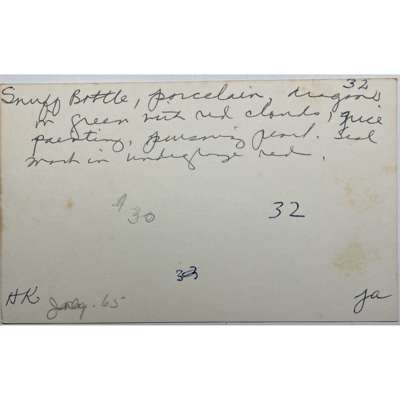 32
Snuff Bottle, porcelain dragons
in green with red clouds, nice
painting, pursuing pearl. Seal
mark in underglaze red.
$30
32
HK
65
ja